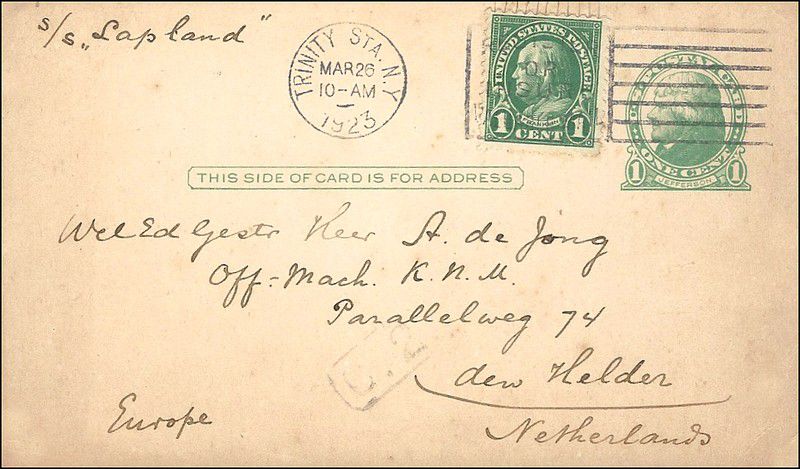 s/s „Lapland"
TRINITY STA. N.Y.
MAR 26
10-AM
1923
UNITED STATES POSTAGE
FRANKLIN
1 CENT 1
ONE CENT
1 JEFFERSON 1
THIS SIDE OF CARD IS FOR ADDRESS
Wel Ed Gestr Heer A. de Jong
Off-Mach. K.N.M.
Parallelweg 74
den Helder
Europe
Netherlands